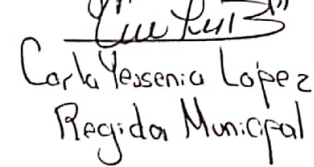 Carla Yessenia López
Regidor Municipal